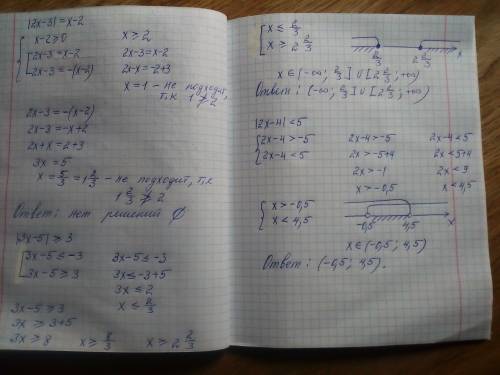 |2x-3| = x-2
x-2≥0 x≥2
2x-3 = x-2 2x-3=x-2
2x-3 = -(x-2) 2x-x=-2+3
x=1 - не подходит,
т.к 1≱2
2x-3 = -(x-2)
2x-3 = -x+2
2x+x = 2+3
3x = 5
x = 5/3 = 1 2/3 - не подходит, т.к
1 2/3 ≱ 2
Ответ: нет решений ∅
|3x-5| ≥ 3
3x-5 ≤ -3 3x-5 ≤ -3
3x-5 ≥ 3 3x ≤ -3+5
3x ≤ 2
x ≤ 2/3
3x-5 ≥ 3
3x ≥ 3+5
3x ≥ 8 x ≥ 8/3 x ≥ 2 2/3
x ≤ 2/3
x ≥ 2 2/3
2/3 2 2/3 x
x ∈ (-∞; 2/3] ∪ [2 2/3; +∞)
Ответ: (-∞; 2/3] ∪ [2 2/3; +∞)
|2x-4| < 5
2x-4 > -5 2x-4 > -5 2x-4 < 5
2x-4 < 5 2x > -5+4 2x < 5+4
2x > -1 2x < 9
x > -0,5 x < 4,5
x > -0,5
x < 4,5
-0,5 4,5 x
x ∈ (-0,5; 4,5)
Ответ: (-0,5; 4,5).